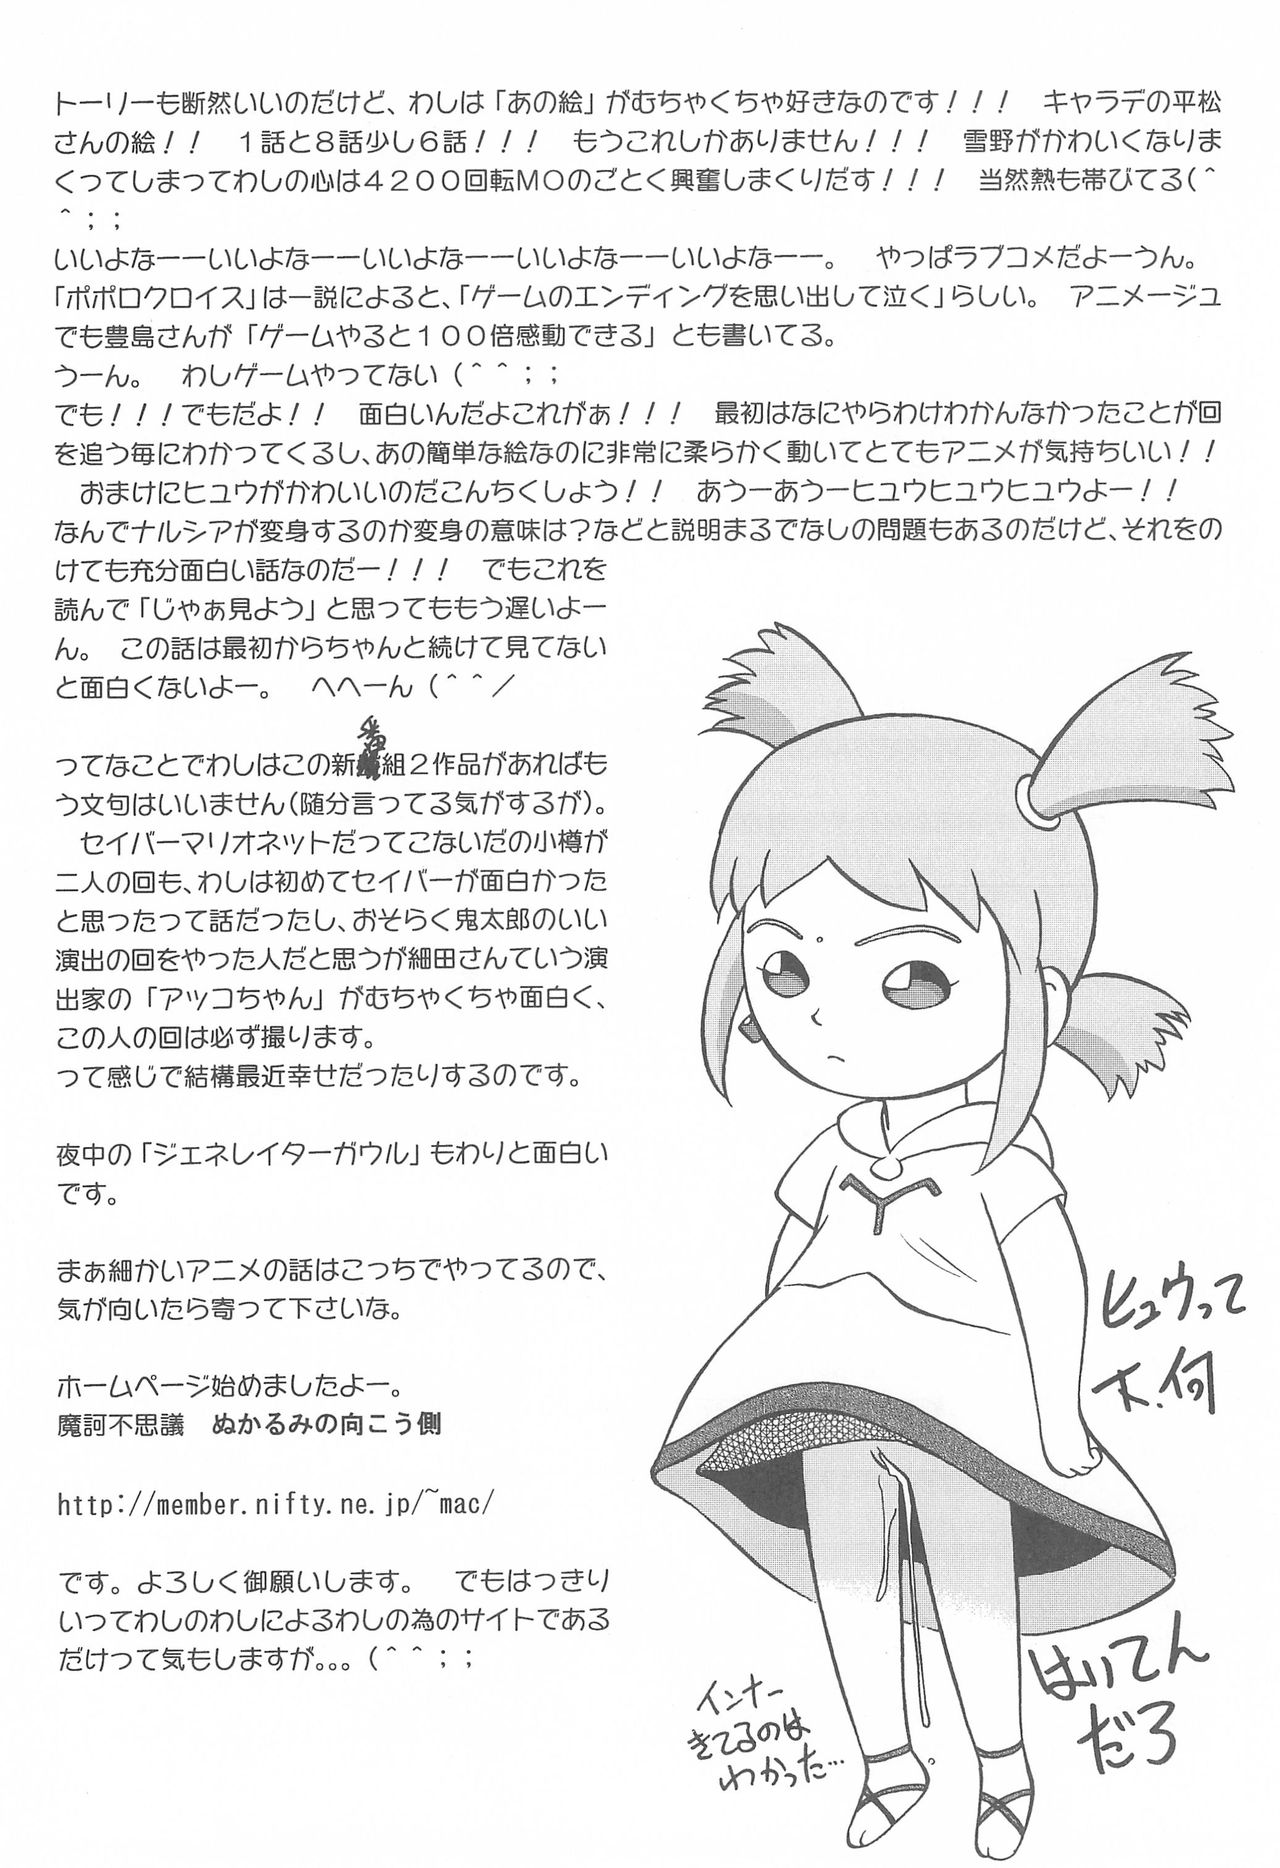 トーリーも断然いいのだけど、わしは「あの絵」がむちゃくちゃ好きなのです！！！　キャラデの平松
さんの絵！！　１話と８話少し６話！！！　もうこれしかありません！！！　雪野がかわいくなりま
くってしまってわしの心は４２００回転ＭＯのごとく興奮しまくりだす！！！　当然熱も帯びてる(＾
＾；；
いいよなーーいいよなーーいいよなーーいいよなーーいいよなーー。　やっぱラブコメだよーうん。
「ポポロクロイス」は一説によると、「ゲームのエンディングを思い出して泣く」らしい。　アニメージュ
でも豊島さんが「ゲームやると１００倍感動できる」とも書いてる。
うーん。　わしゲームやってない（＾＾；；
でも！！！でもだよ！！　面白いんだよこれがぁ！！！　最初はなにやらわけわかんなかったことが回
を追う毎にわかってくるし、あの簡単な絵なのに非常に柔らかく動いてとてもアニメが気持ちいい！！
　おまけにヒュウがかわいいのだこんちくしょう！！　あうーあうーヒュウヒュウヒュウよー！！
なんでナルシアが変身するのか変身の意味は？などと説明まるでなしの問題もあるのだけど、それをの
けても充分面白い話なのだー！！！　でもこれを
読んで「じゃぁ見よう」と思ってももう遅いよー
ん。　この話は最初からちゃんと続けて見てない
と面白くないよー。　へへーん（＾＾／
ってなことでわしはこの新番組２作品があればも
う文句はいいません（随分言ってる気がするが）。
　セイバーマリオネットだってこないだの小樽が
二人の回も、わしは初めてセイバーが面白かった
と思ったって話だったし、おそらく鬼太郎のいい
演出の回をやった人だと思うが細田さんていう演
出家の「アッコちゃん」がむちゃくちゃ面白く、
この人の回は必ず撮ります。
って感じで結構最近幸せだったりするのです。
夜中の「ジェネレイターガウル」もわりと面白い
です。
まぁ細かいアニメの話はこっちでやってるので、
気が向いたら寄って下さいな。
ホームページ始めましたよー。
魔訶不思議　ぬかるみの向こう側
http://member.nifty.ne.jp/~mac/
です。よろしく御願いします。　でもはっきり
いってわしのわしによるわしの為のサイトである
だけって気もしますが｡｡｡（＾＾；；